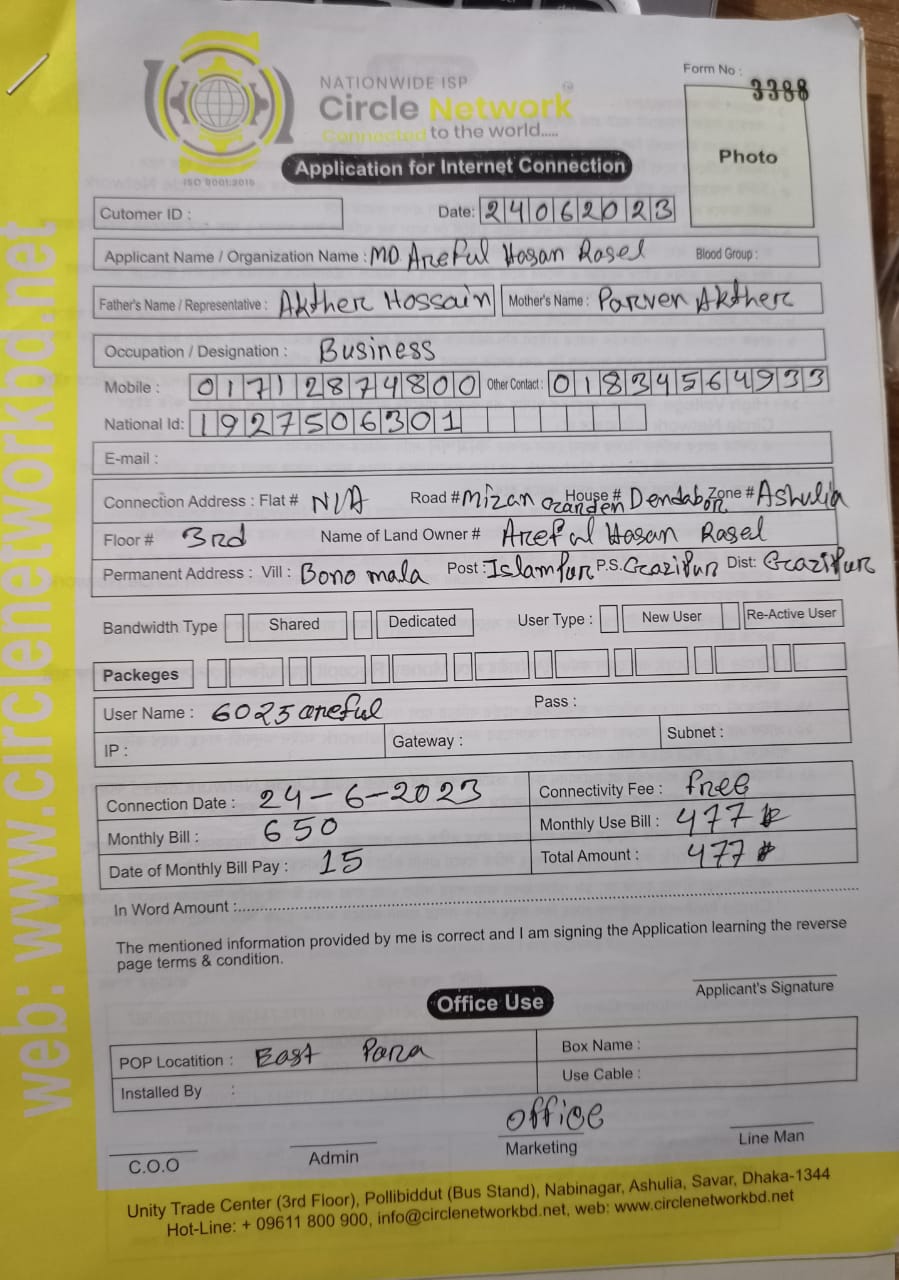 web: www.circlenetworkbd.net
NATIONWIDE ISP
Circle Network
Connected to the world.....
ISO 9001:2015
Form No :
3388
Photo
Application for Internet Connection
Cutomer ID :
Date: 24062023
Applicant Name / Organization Name : MD Areful Hasan Rasel Blood Group :
Father's Name / Representative : Akther Hossain Mother's Name : Parven Akther
Occupation / Designation : Business
Mobile : 01712874800 Other Contact : 01834564933
National Id: 1927506301
E-mail :
Connection Address : Flat # N/A Road # Mizan Garden House # Dendabor Zone # Ashulia
Floor # 3rd Name of Land Owner # Areful Hasan Rasel
Permanent Address : Vill : Bono mala Post : Islampur P.S. Gazipur Dist: Gazipur
Bandwidth Type Shared Dedicated User Type : New User Re-Active User
Packeges
User Name : 6023areful Pass :
IP : Gateway : Subnet :
Connection Date : 24-6-2023 Connectivity Fee : free
Monthly Bill : 650 Monthly Use Bill : 477
Date of Monthly Bill Pay : 15 Total Amount : 477
In Word Amount :
The mentioned information provided by me is correct and I am signing the Application learning the reverse
page terms & condition.
Applicant's Signature
Office Use
POP Locatition : East Para Box Name :
Installed By : Use Cable :
office
C.O.O Admin Marketing Line Man
Unity Trade Center (3rd Floor), Pollibiddut (Bus Stand), Nabinagar, Ashulia, Savar, Dhaka-1344
Hot-Line: + 09611 800 900, info@circlenetworkbd.net, web: www.circlenetworkbd.net